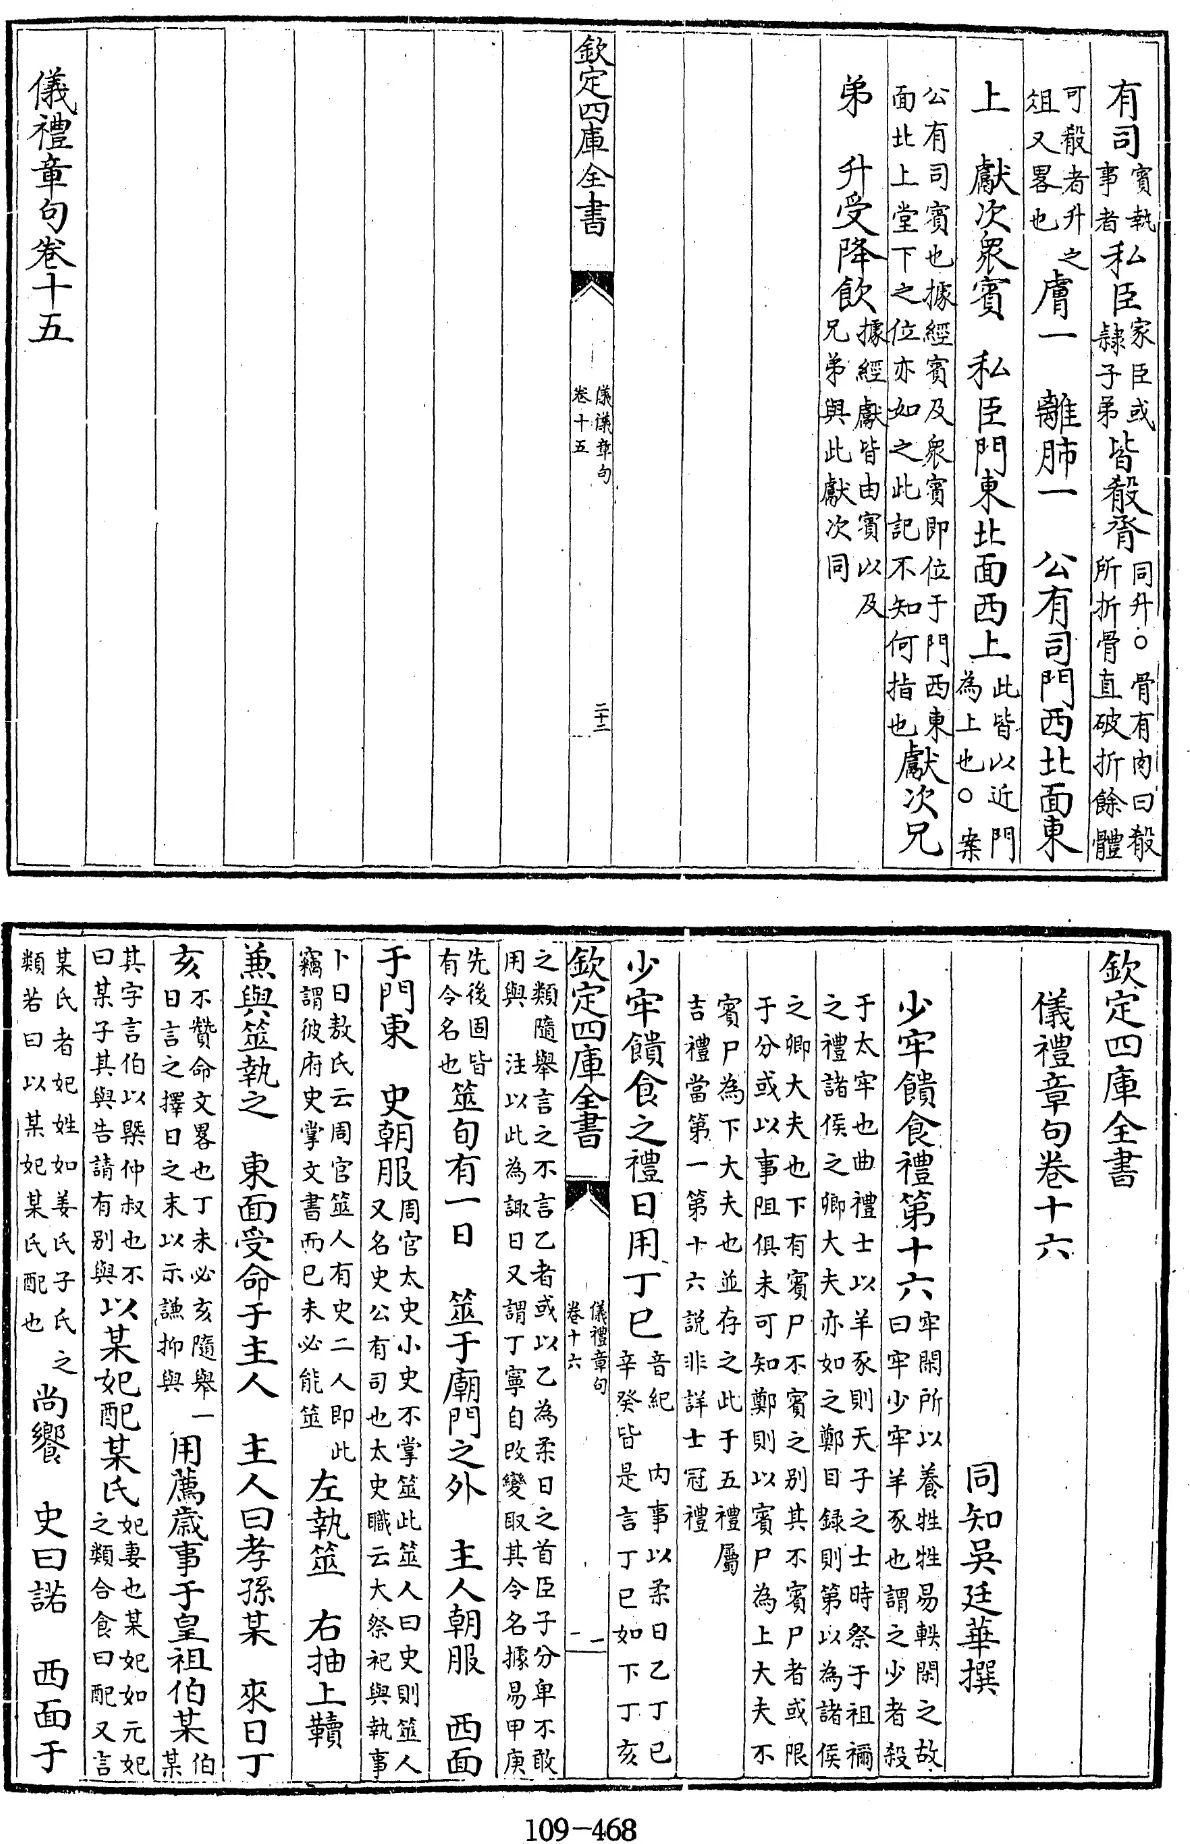 有司賓執事者私臣家臣或隸子弟皆殽脀同升○骨有肉曰殽所折骨直破折餘體
可殽者升之俎又畧也膚一　離肺一　公有司門西北面東
上　獻次衆賓　私臣門東北面西上此皆以近門為上也○案
公有司賓也據經賓及衆賓即位于門西東面北上堂下之位亦如之此記不知何指也獻次兄
弟　升受降飲據經獻皆由賓以及兄弟與此獻次同
欽定四庫全書　儀禮章句卷十五　二十二
儀禮章句卷十五
欽定四庫全書
儀禮章句卷十六
同知吳廷華撰
少牢饋食禮第十六牢閑所以養牲牲易軼閑之故曰牢少牢羊豕也謂之少者殺
于太牢也曲禮士以羊豕則天子之士時祭于祖禰之禮諸侯之卿大夫亦如之鄭目録則第以為諸侯
之卿大夫也下有賓尸不賓之别其不賓尸者或限于分或以事阻俱未可知鄭則以賓尸為上大夫不
賓尸為下大夫也並存之此于五禮屬吉禮當第一第十六説非詳士冠禮
少牢饋食之禮日用丁已音紀　内事以柔日乙丁已辛癸皆是言丁已如下丁亥
之類隨舉言之不言乙者或以乙為柔日之首臣子分卑不敢用與　注以此為諏日又謂丁寧自改變取其令名據易甲庚
欽定四庫全書　儀禮章句卷十六　一
先後固皆有令名也筮旬有一日　筮于廟門之外　主人朝服　西面
于門東　史朝服周官太史小史不掌筮此筮人曰史則筮人又名史公有司也太史職云大祭祀與執事
卜日敖氏云周官筮人有史二人即此竊謂彼府史掌文書而已未必能筮左執筮　右抽上韇
兼與筮執之　東面受命于主人　主人曰孝孫某　來日丁
亥不贊命文畧也丁未必亥隨舉一日言之擇日之末以示謙抑與用薦歲事于皇祖伯某伯某
其字言伯以槩仲叔也不曰某子其與告請有别與以某妃配某氏妃妻也某妃如元妃之類合食曰配又言
某氏者妃姓如姜氏子氏之類若曰以某妃某氏配也尚饗　史曰諾　西面于
109-468